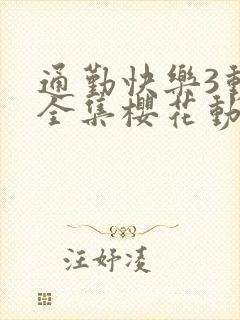 通勤快樂3動
全集櫻花動
汪妤凌